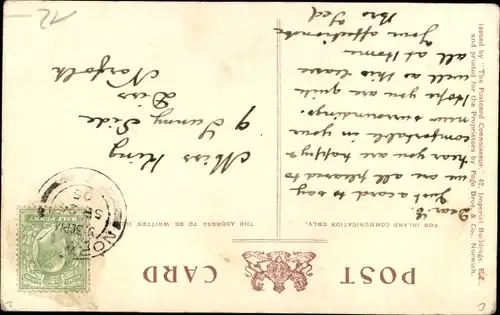 POST CARD
FOR INLAND COMMUNICATION ONLY.
THE ADDRESS TO BE WRITTEN
Dear E
Just a card to say
we are all pleased to
hear you are happy &
comfortable in your
new surroundings.
Hope you are quite
well as this leaves
all at Home
Your affectionate
Bro Ted
Miss King
9 Sunny Side
Diss
Norfolk
HALF PENNY
Issued by "The Postcard Connoisseur" 42, Imperial Buildings, E.C.,
and printed for the Proprietors by Page Bros. & Co., Norwich.
12